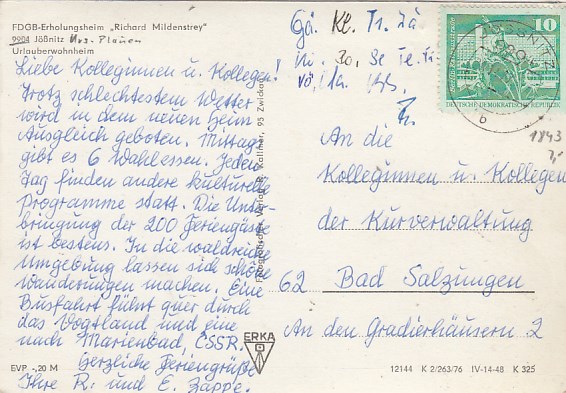 FDGB-Erholungsheim „Richard Mildenstrey"
9904 Jößnitz Krs. Plauen
Urlauberwohnheim
Liebe Kolleginnen u. Kollegen!
Trotz schlechtestem Wetter
wird in dem neuen Heim
Ausgleich geboten. Mittags
gibt es 6 Wahlessen. Jeden
Tag finden andere kulturelle
Programme statt. Die Unter-
bringung der 200 Feriengäste
ist bestens. In die waldreiche
Umgebung lassen sich schöne
Wanderungen machen. Eine
Busfahrt führt quer durch
das Vogtland und eine
nach Marienbad, ČSSR.
Herzliche Feriengrüße
Ihre R. und E. Zappe.
EVP -,20 M
Fotografischer Verlag R. Kallmer, 95 Zwickau
Gä. Kl. Tr. Zä
10
DEUTSCHE DEMOKRATISCHE REPUBLIK
b
1843
An die
Kolleginnen u. Kollegen
der Kurverwaltung
62 Bad Salzungen
An den Gradierhäusern 2
ERKA
12144 K 2/263/76 IV-14-48 K 325